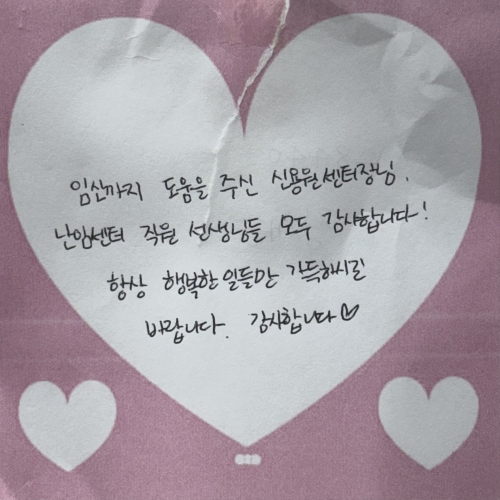 임신까지 도움을 주신 신용원 센터장님,
난임센터 직원 선생님들 모두 감사합니다!
항상 행복한 일들만 가득하시길
바랍니다. 감사합니다♡